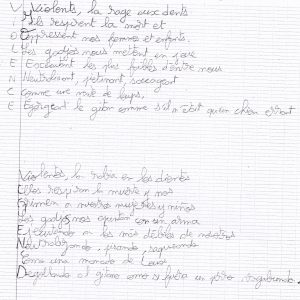 Violents, la rage aux dents
Ils respirent la mort et
Oppressent nos femmes et enfants.
Les gadjos nous mettent en joue
Exécutant les plus faibles d'entre nous
Neutralisant, piétinant, saccageant
Comme une meute de loups,
Egorgeant le gitan comme s'il n'était qu'un chien errant.
Violentos, la rabia en los dientes
Ellos respiran la muerte y nos
Oprimen a nuestras mujeres y niños
Los gadjos nos apuntan con un arma
Ejecutando a los más débiles de nosotros
Neutralizando, pisando, saqueando
Como una manada de lobos,
Degollando al gitano como si fuera un perro vagabundo.